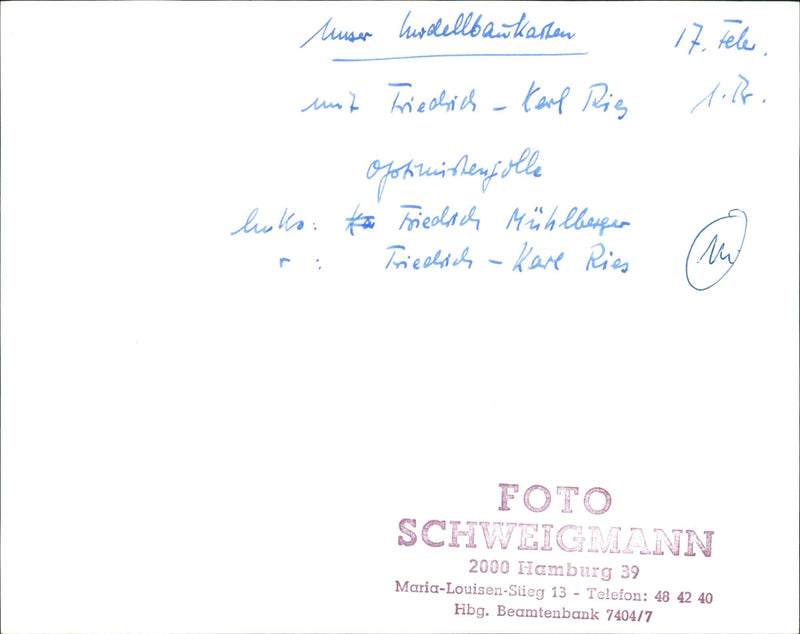 Unser Modellbaukasten 17. Febr.
mit Friedrich - Karl Ries 1. Pr.
Optimistenjolle
links: Ka Friedrich Mühlberger
r : Friedrich - Karl Ries
FOTO
SCHWEIGMANN
2000 Hamburg 39
Maria-Louisen-Stieg 13 - Telefon: 48 42 40
Hbg. Beamtenbank 7404/7